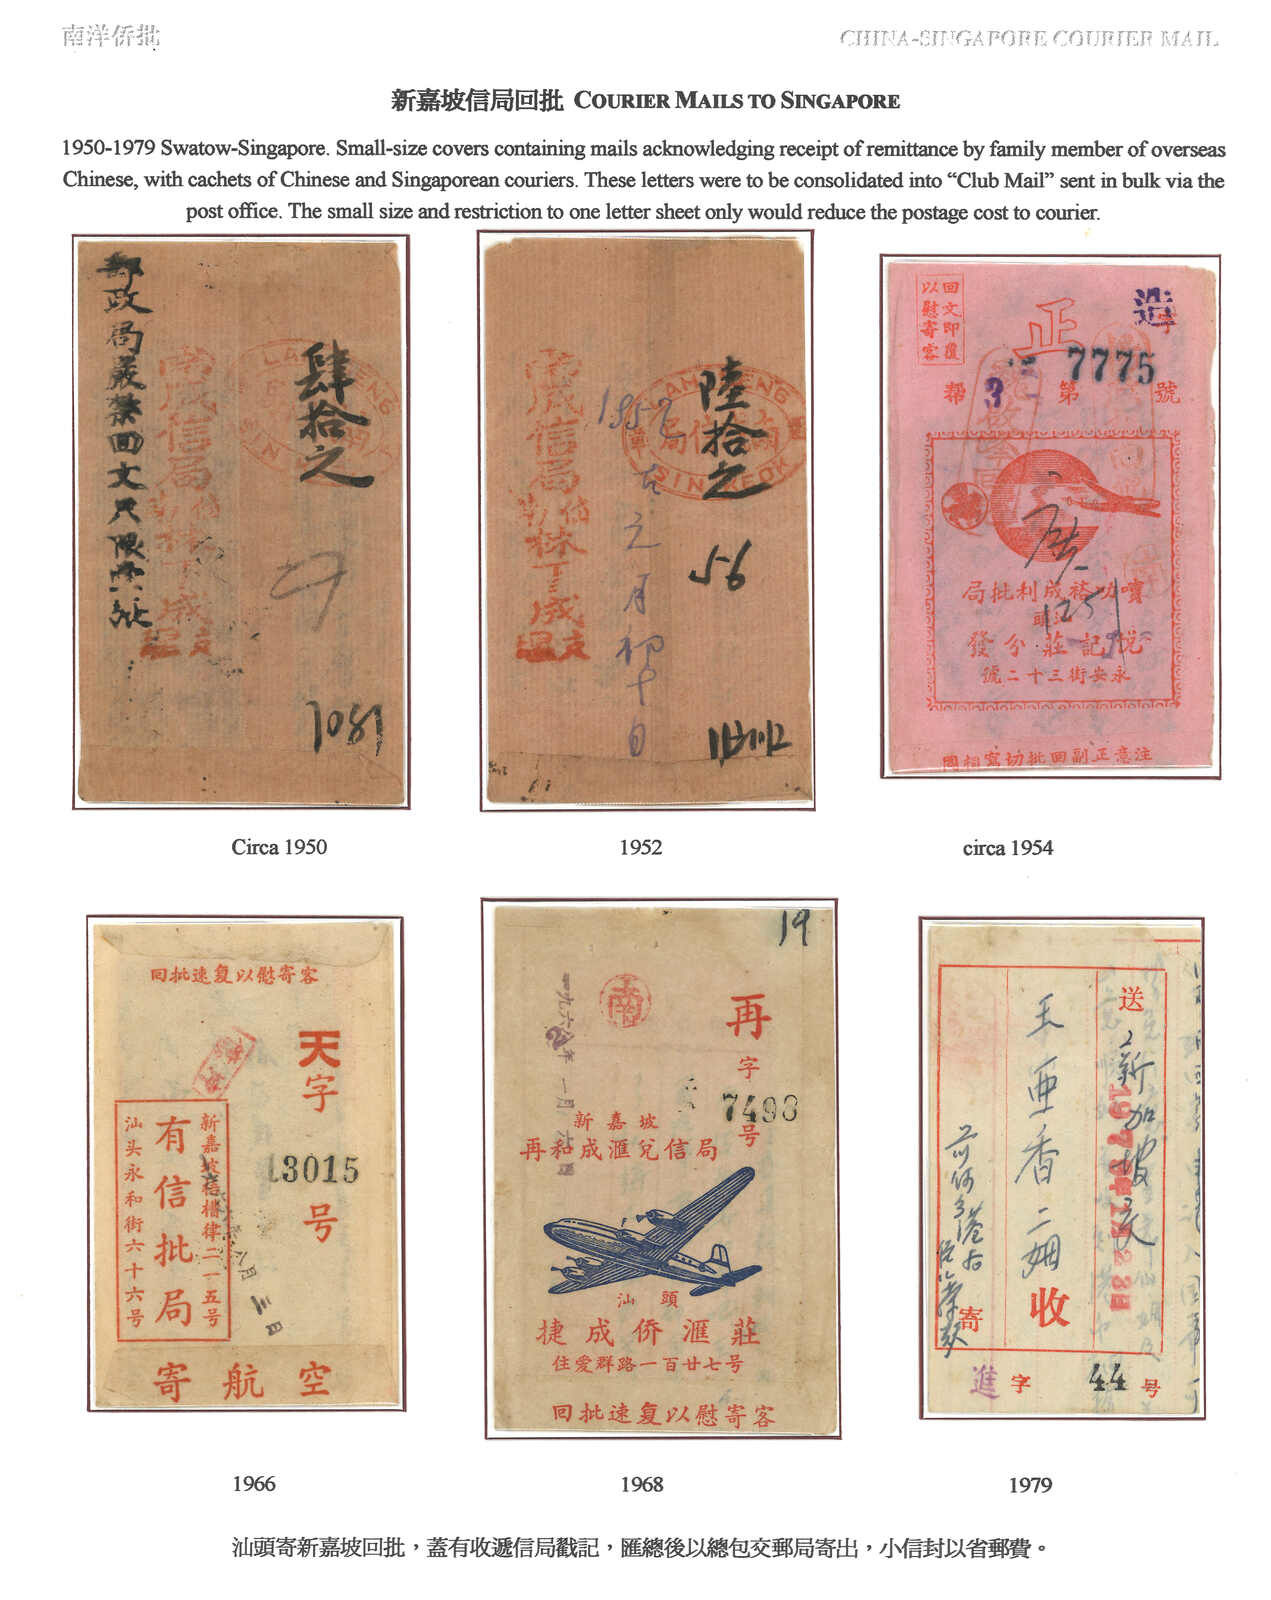 南洋侨批
CHINA-SINGAPORE COURIER MAIL
新嘉坡信局回批 COURIER MAILS TO SINGAPORE
1950-1979 Swatow-Singapore. Small-size covers containing mails acknowledging receipt of remittance by family member of overseas
Chinese, with cachets of Chinese and Singaporean couriers. These letters were to be consolidated into “Club Mail” sent in bulk via the
post office. The small size and restriction to one letter sheet only would reduce the postage cost to courier.
郵政局嚴禁回文只限壹紙
南成信局
肆拾元
7081
Circa 1950
南成信局
陸拾元
1952
元月初十日
56
1952
回文即覆
以慰寄客
正
造
7775
幇 3 第 號
嘪叻裕成利批局
汕頭
悅記莊分發
永安街三十二號
注意正副回批切寫相同
circa 1954
回批速复以慰寄客
天字
13015
号
新嘉坡梧槽律二一五号
有信批局
汕头永和街六十六号
寄航空
1966
19
南
再
字
7498
号
一九六八年一月
新嘉坡
再和成滙兌信局
汕頭
捷成侨滙莊
住愛群路一百廿七号
回批速复以慰寄客
1968
送
新加坡交
王亜香二姻
收
寄
進字 44 号
1979
汕頭寄新嘉坡回批，蓋有收遞信局戳記，匯總後以總包交郵局寄出，小信封以省郵費。